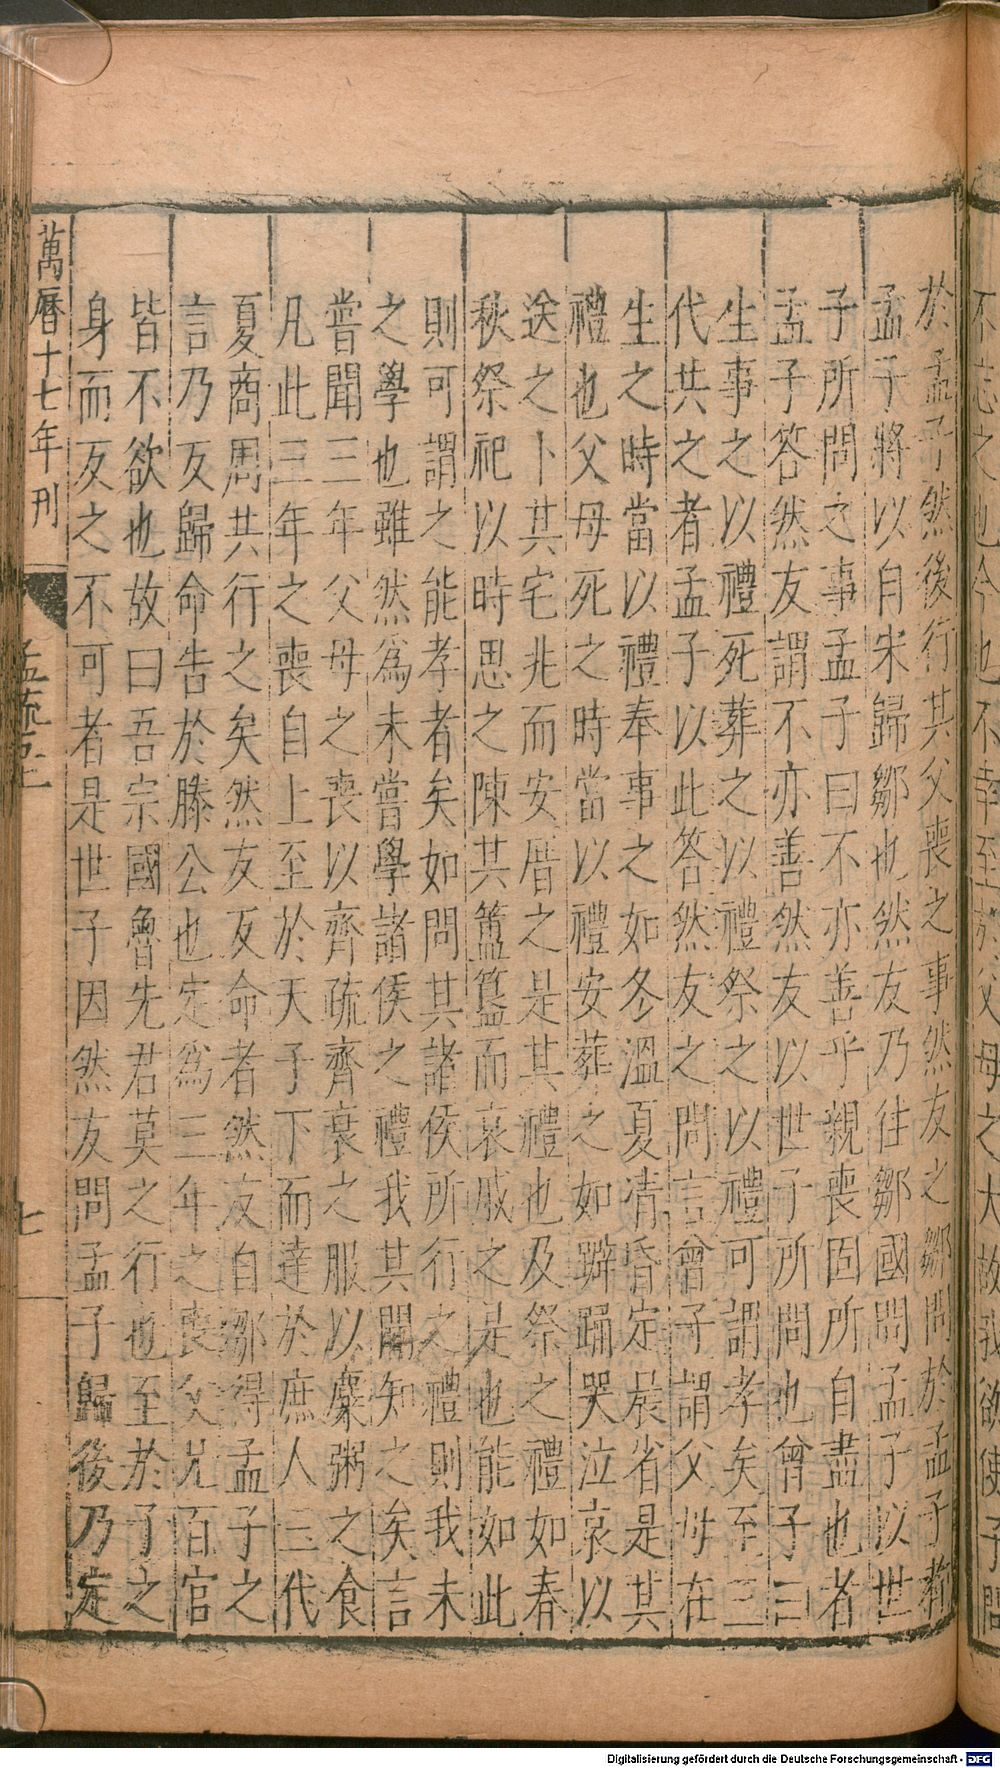 不忘之也今也不幸至於父母之大故我欲使子問
於孟子然後行其父喪之事然友之鄒問於孟子者
孟子將以自宋歸鄒也然友乃往鄒國問孟子以世
子所問之事孟子曰不亦善乎親喪固所自盡也者
孟子答然友謂不亦善然友以世子所問也曾子曰
生事之以禮死葬之以禮祭之以禮可謂孝矣至三
代共之者孟子以此答然友之問言曾子謂父母在
生之時當以禮奉事之如冬溫夏凊昏定晨省是其
禮也父母死之時當以禮安葬之如擗踊哭泣哀以
送之卜其宅兆而安厝之是其禮也及祭之禮如春
秋祭祀以時思之陳其簠簋而哀戚之是也能如此
則可謂之能孝者矣如問其諸侯所行之禮則我未
之學也雖然為未嘗學諸侯之禮我其聞知之矣言
嘗聞三年父母之喪以齊疏齊衰之服以麋粥之食
凡此三年之喪自上至於天子下而達於庶人三代
夏商周共行之矣然友反命者然友自鄒得孟子之
言乃反歸命告於滕公也定為三年之喪父兄百官
皆不欲也故曰吾宗國魯先君莫之行也至於子之
身而反之不可者是世子因然友問孟子歸後乃定
萬曆十七年刊
孟疏五上
七
Digitalisierung gefördert durch die Deutsche Forschungsgemeinschaft - DFG